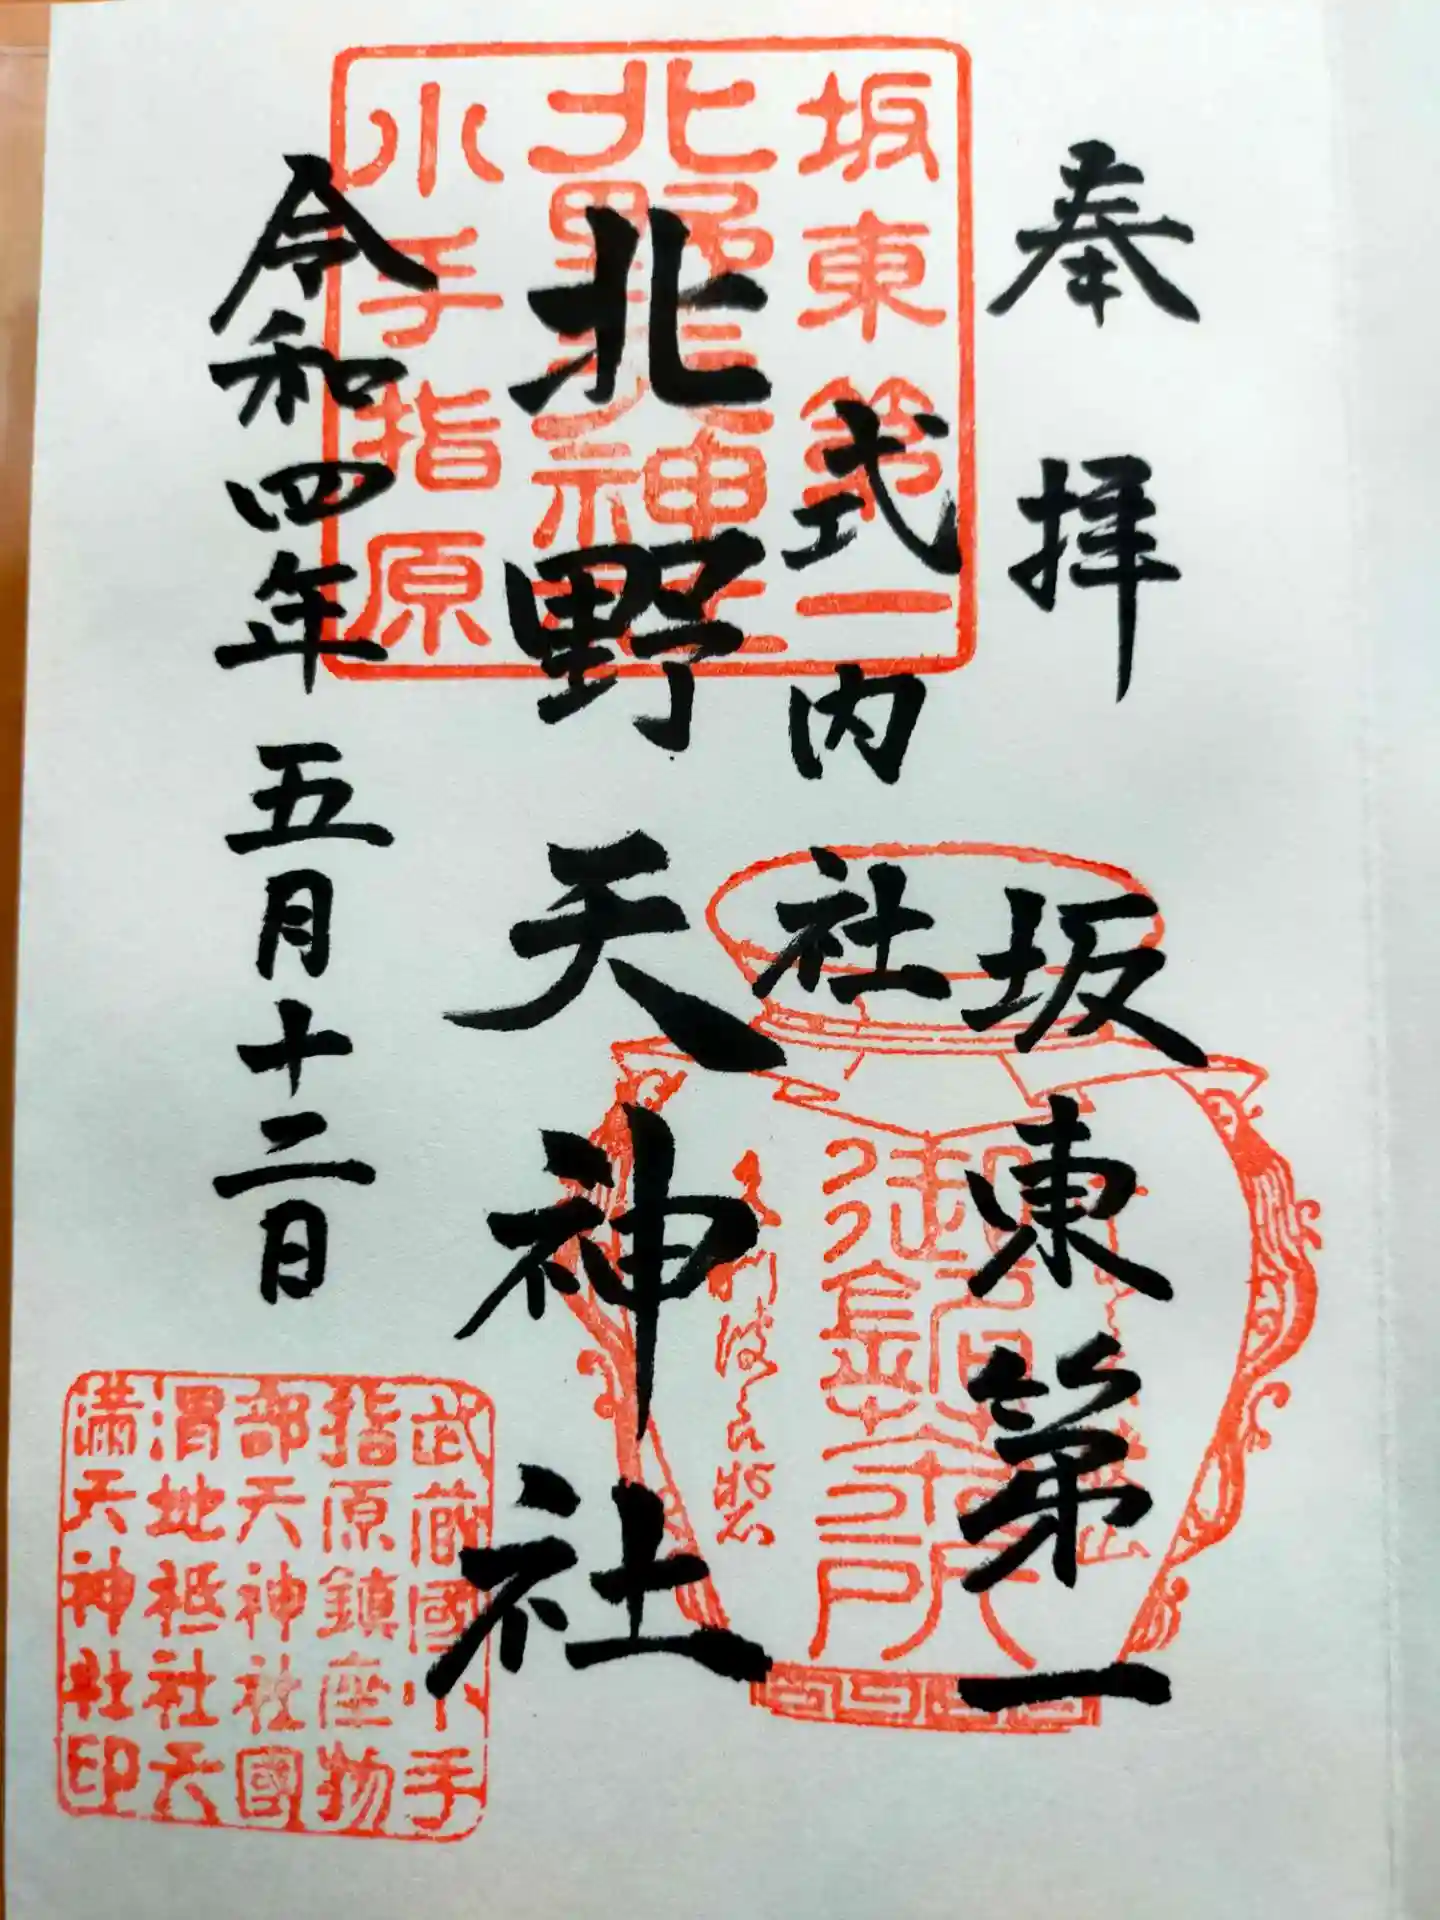 奉拝
坂東第一
式内社
北野天神社
令和四年五月十二日
坂東第一
北野天神社
小手指原
武蔵國小手
指原鎮座物
部天神社國
渭地祇社天
満天神社印